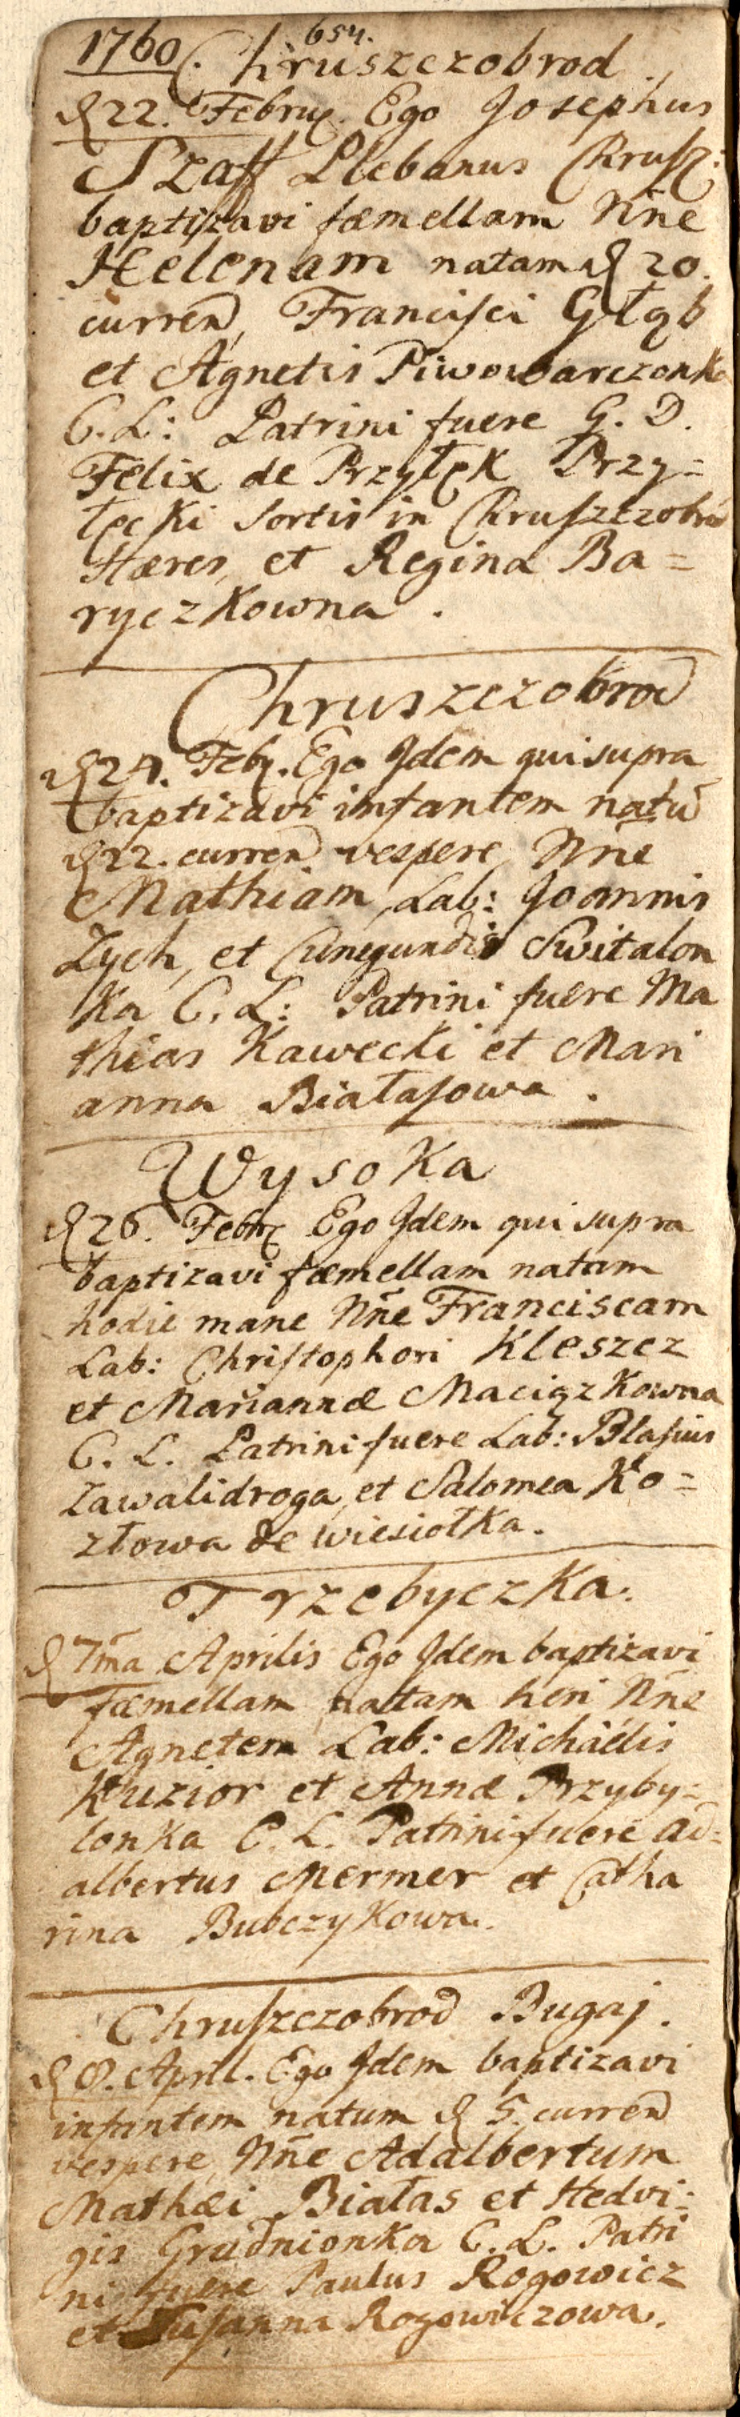 1760. 654. Chruszczobrod.
d 22. Febru. Ego Josephus
Szaff Plebanus Chrusz:
baptizavi fæmellam Nñe
Helenam natam d 20.
curren, Francisci Głąb
et Agnetis Piwowarczonka
C. L: Patrini fuere G. D.
Felix de Przyłęk Przy=
łęcki Sortis in Chruszczobrod
Hæres, et Regina Ba=
ryczkowna.
Chruszczobrod
d 24. Feb. Ego Idem qui supra
baptizavi infantem natu
d 22. curren vespere Nñe
Mathiam, Lab: Joannis
Zych, et Cunegundis Switalon
ka C. L: Patrini fuere Ma
thias Kawecki et Mari
anna Białasowa.
Wysoka
d 26. Febr Ego Idem qui supra
baptizavi fæmellam natam
hodie mane Nñe Franciscam
Lab: Christophori Kleszcz
et Mariannæ Maciązkowna
C. L. Patrini fuere Lab: Blasius
Zawalidroga, et Salomea Ko=
złowa de wiesiołka.
Trzebyczka.
d 7ma Aprilis Ego Idem baptizavi
fæmellam natam heri Nñe
Agnetem Lab: Michaëlis
Kuzior et Annæ Przyby=
lonka C. L. Patrini fuere Ad=
albertus Mermer et Catha
rina Bubczykowa.
Chruszczobrod Bugaj.
d 8. April. Ego Idem baptizavi
infantem natum d 5. curren
vespere, Nñe Adalbertum
Mathæi Białas et Hedvi=
gis Grudnionka C. L. Patri
ni fuere Paulus Rogowicz
et Susanna Rogowiczowa.